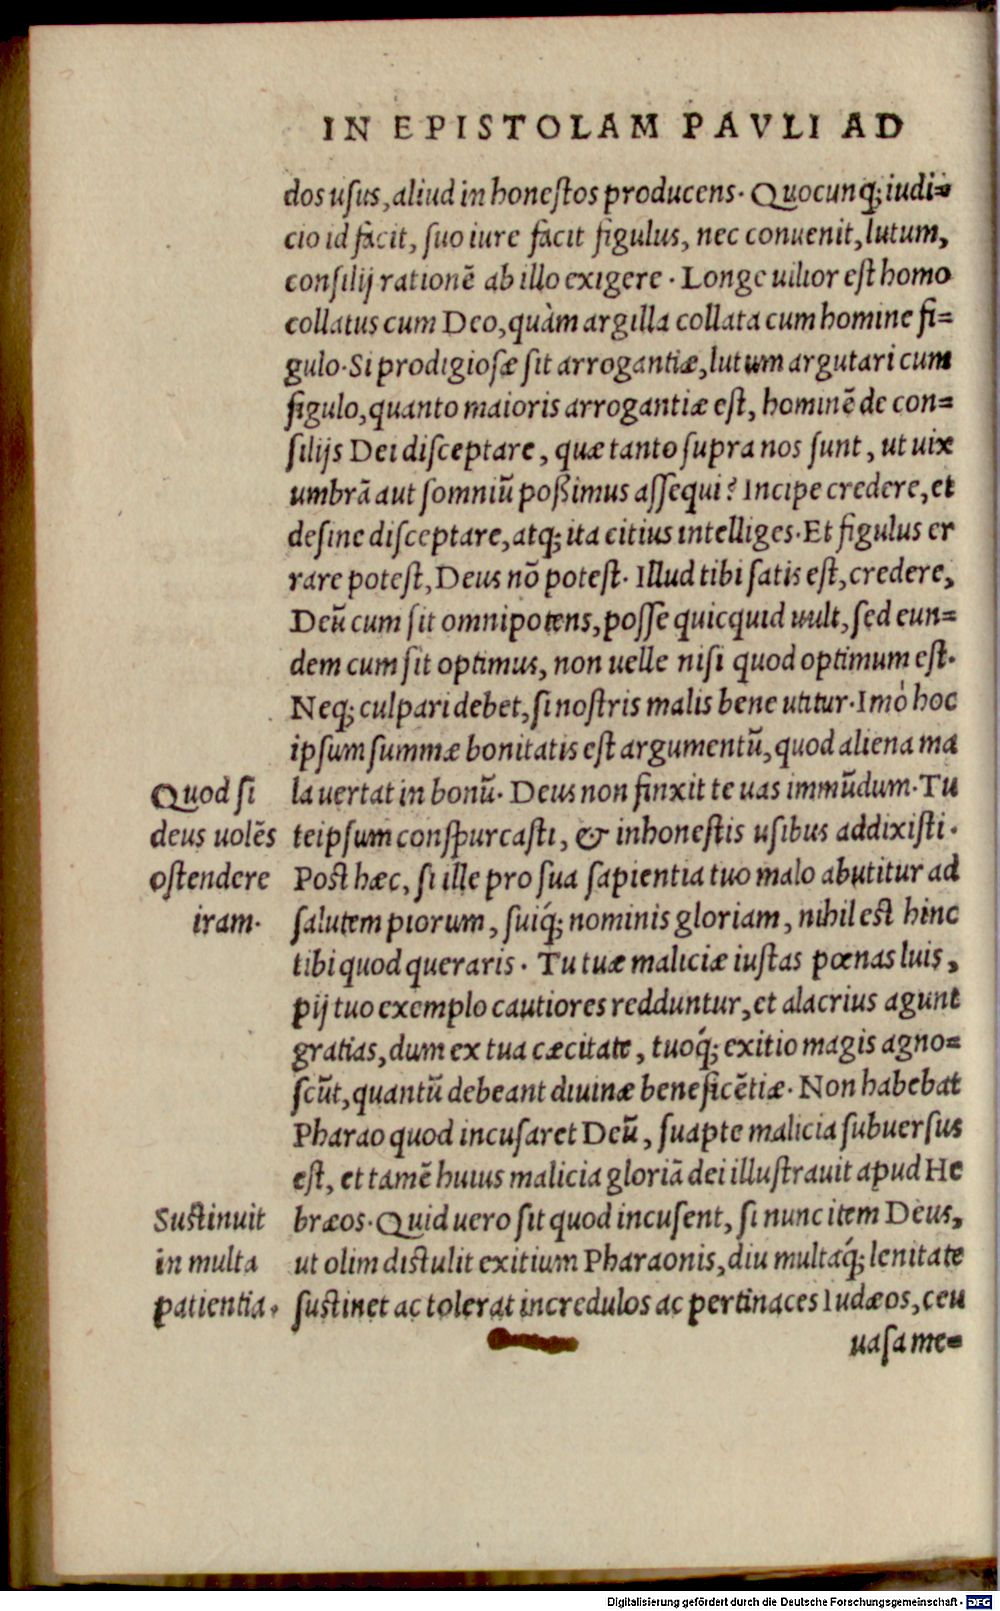 IN EPISTOLAM PAVLI AD
dos uſus, aliud in honeſtos producens. Quocunq; iudi=
cio id facit, ſuo iure facit figulus, nec conuenit, lutum,
conſilij rationē ab illo exigere. Longe uilior eſt homo
collatus cum Deo, quàm argilla collata cum homine fi=
gulo. Si prodigioſæ ſit arrogantiæ, lutum argutari cum
figulo, quanto maioris arrogantiæ eſt, hominē de con=
ſilijs Dei diſceptare, quæ tanto ſupra nos ſunt, ut uix
umbrā aut ſomniū poßimus aſſequi? Incipe credere, et
deſine diſceptare, atq; ita citius intelliges. Et figulus er
rare poteſt, Deus nō poteſt. Illud tibi ſatis eſt, credere,
Deū cum ſit omnipotens, poſſe quicquid uult, ſed eun=
dem cum ſit optimus, non uelle niſi quod optimum eſt.
Neq; culpari debet, ſi noſtris malis bene utitur. Imò hoc
ipſum ſummæ bonitatis eſt argumentū, quod aliena ma
la uertat in bonū. Deus non finxit te uas immūdum. Tu
teipſum conſpurcaſti, & inhoneſtis uſibus addixiſti.
Poſt hæc, ſi ille pro ſua ſapientia tuo malo abutitur ad
ſalutem piorum, ſuiq́; nominis gloriam, nihil eſt hinc
tibi quod queraris. Tu tuæ maliciæ iuſtas pœnas luis,
pij tuo exemplo cautiores redduntur, et alacrius agunt
gratias, dum ex tua cæcitate, tuoq́; exitio magis agno=
ſcūt, quantū debeant diuinæ beneficētiæ. Non habebat
Pharao quod incuſaret Deū, ſuapte malicia ſubuerſus
eſt, et tamē huius malicia gloriā dei illuſtrauit apud He
bræos. Quid uero ſit quod incuſent, ſi nunc item Deus,
ut olim diſtulit exitium Pharaonis, diu multaq́; lenitate
ſuſtinet ac tolerat incredulos ac pertinaces Iudæos, ceu
uaſa me=
Quod ſi
deus uolēs
oſtendere
iram.
Suſtinuit
in multa
patientia.
Digitalisierung gefördert durch die Deutsche Forschungsgemeinschaft - DFG